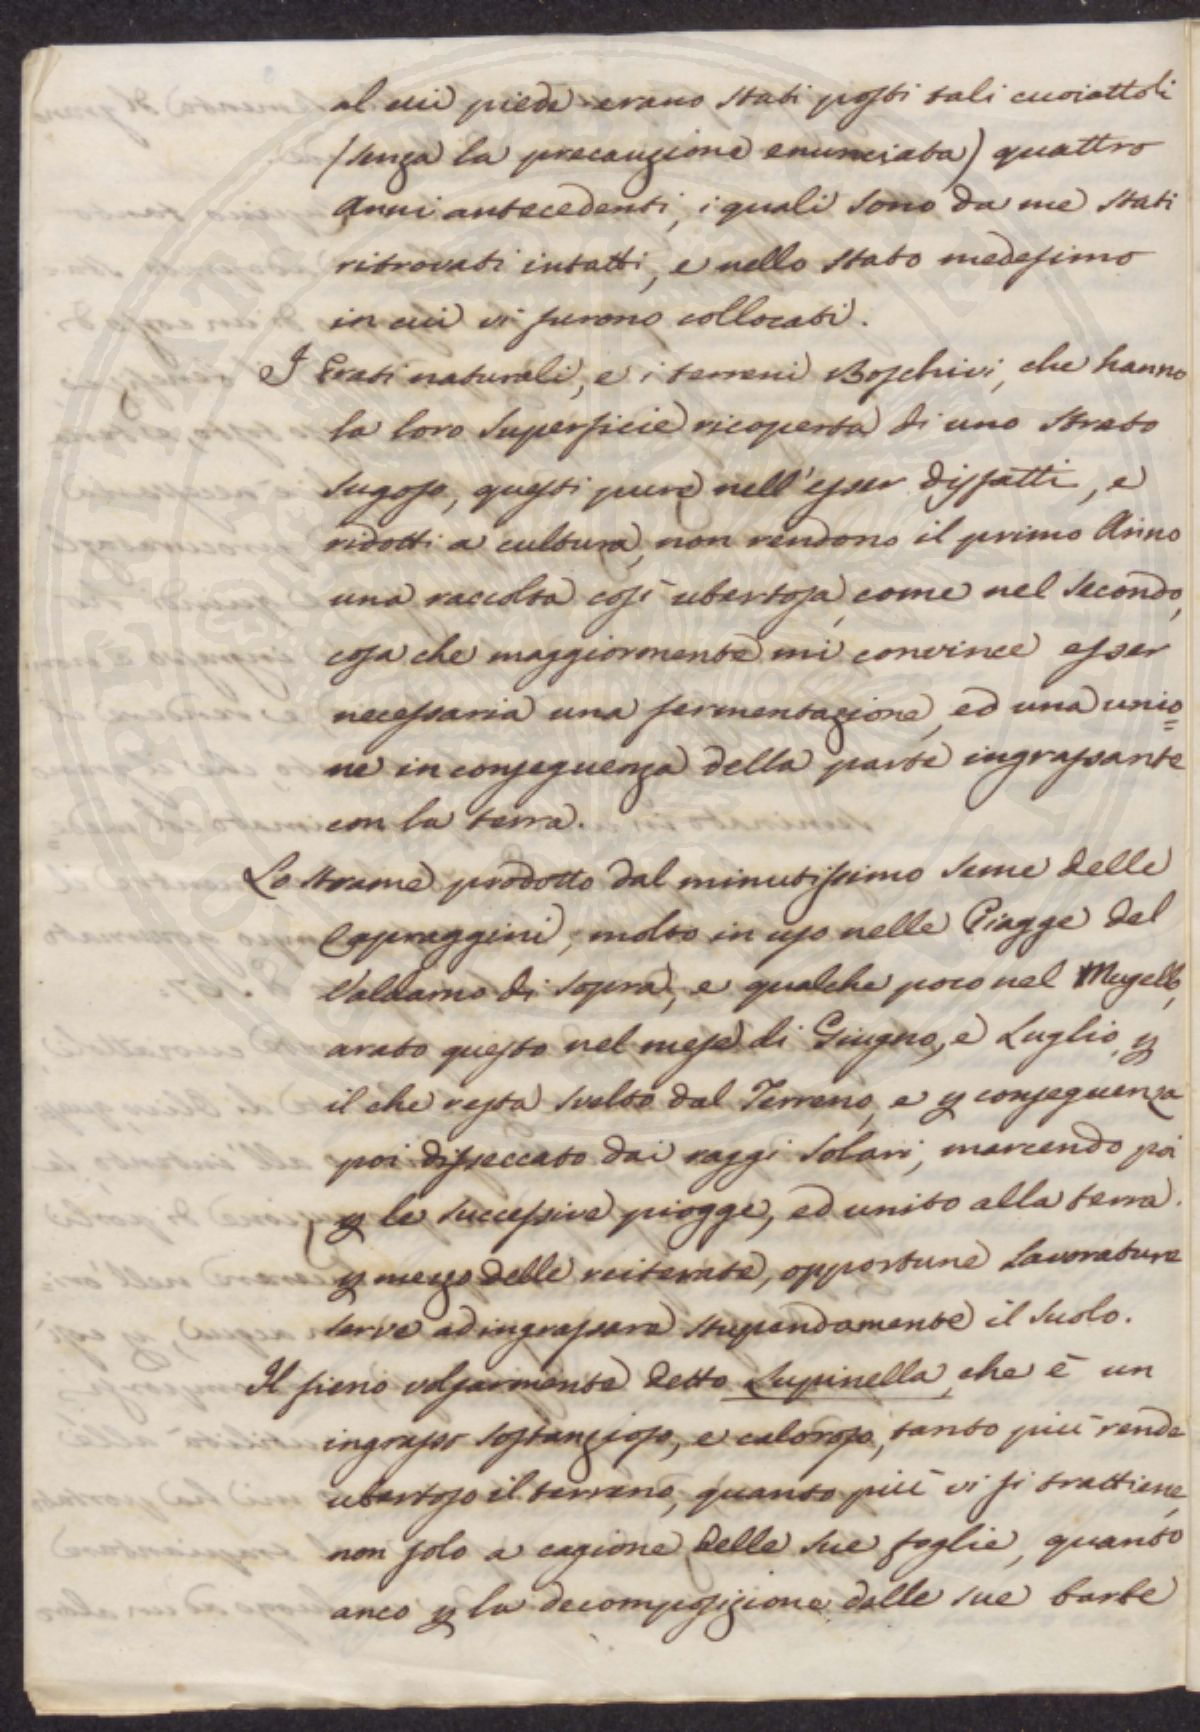 al cui piede erano stati posti tali cuoiattoli
(senza la precauzione enunciata) quattro
Anni antecedenti, i quali sono da me stati
ritrovati intatti, e nello stato medesimo
in cui vi furono collocati.
I Prati naturali, e i terreni Boschivi, che hanno
la loro superficie ricoperta di uno strato
sugoso, questi pure nell'esser disfatti, e
ridotti a cultura, non rendono il primo Anno
una raccolta così ubertosa, come nel secondo,
cosa che maggiormente mi convince esser
necessaria una fermentazione, ed una unio=
ne in conseguenza della parte ingrassante
con la terra.
Lo strame prodotto dal minutissimo seme delle
Capraggini, molto in uso nelle Piagge del
Valdarno di sopra, e qualche poco nel Mugello,
arato questo nel mese di Giugno, e Luglio, p
il che resta svelto dal Terreno, e p conseguenza
poi disseccato dai raggi solari, marcendo poi
p le successive piogge, ed unito alla terra
p mezzo delle reiterate, opportune lavorature
serve ad ingrassare stupendamente il suolo.
Il fieno volgarmente detto Lupinella, che è un
ingrasso sostanzioso, e caloroso, tanto più rende
ubertoso il terreno, quanto più vi si trattiene,
non solo a cagione delle sue foglie, quanto
anco p la decomposizione delle sue barbe